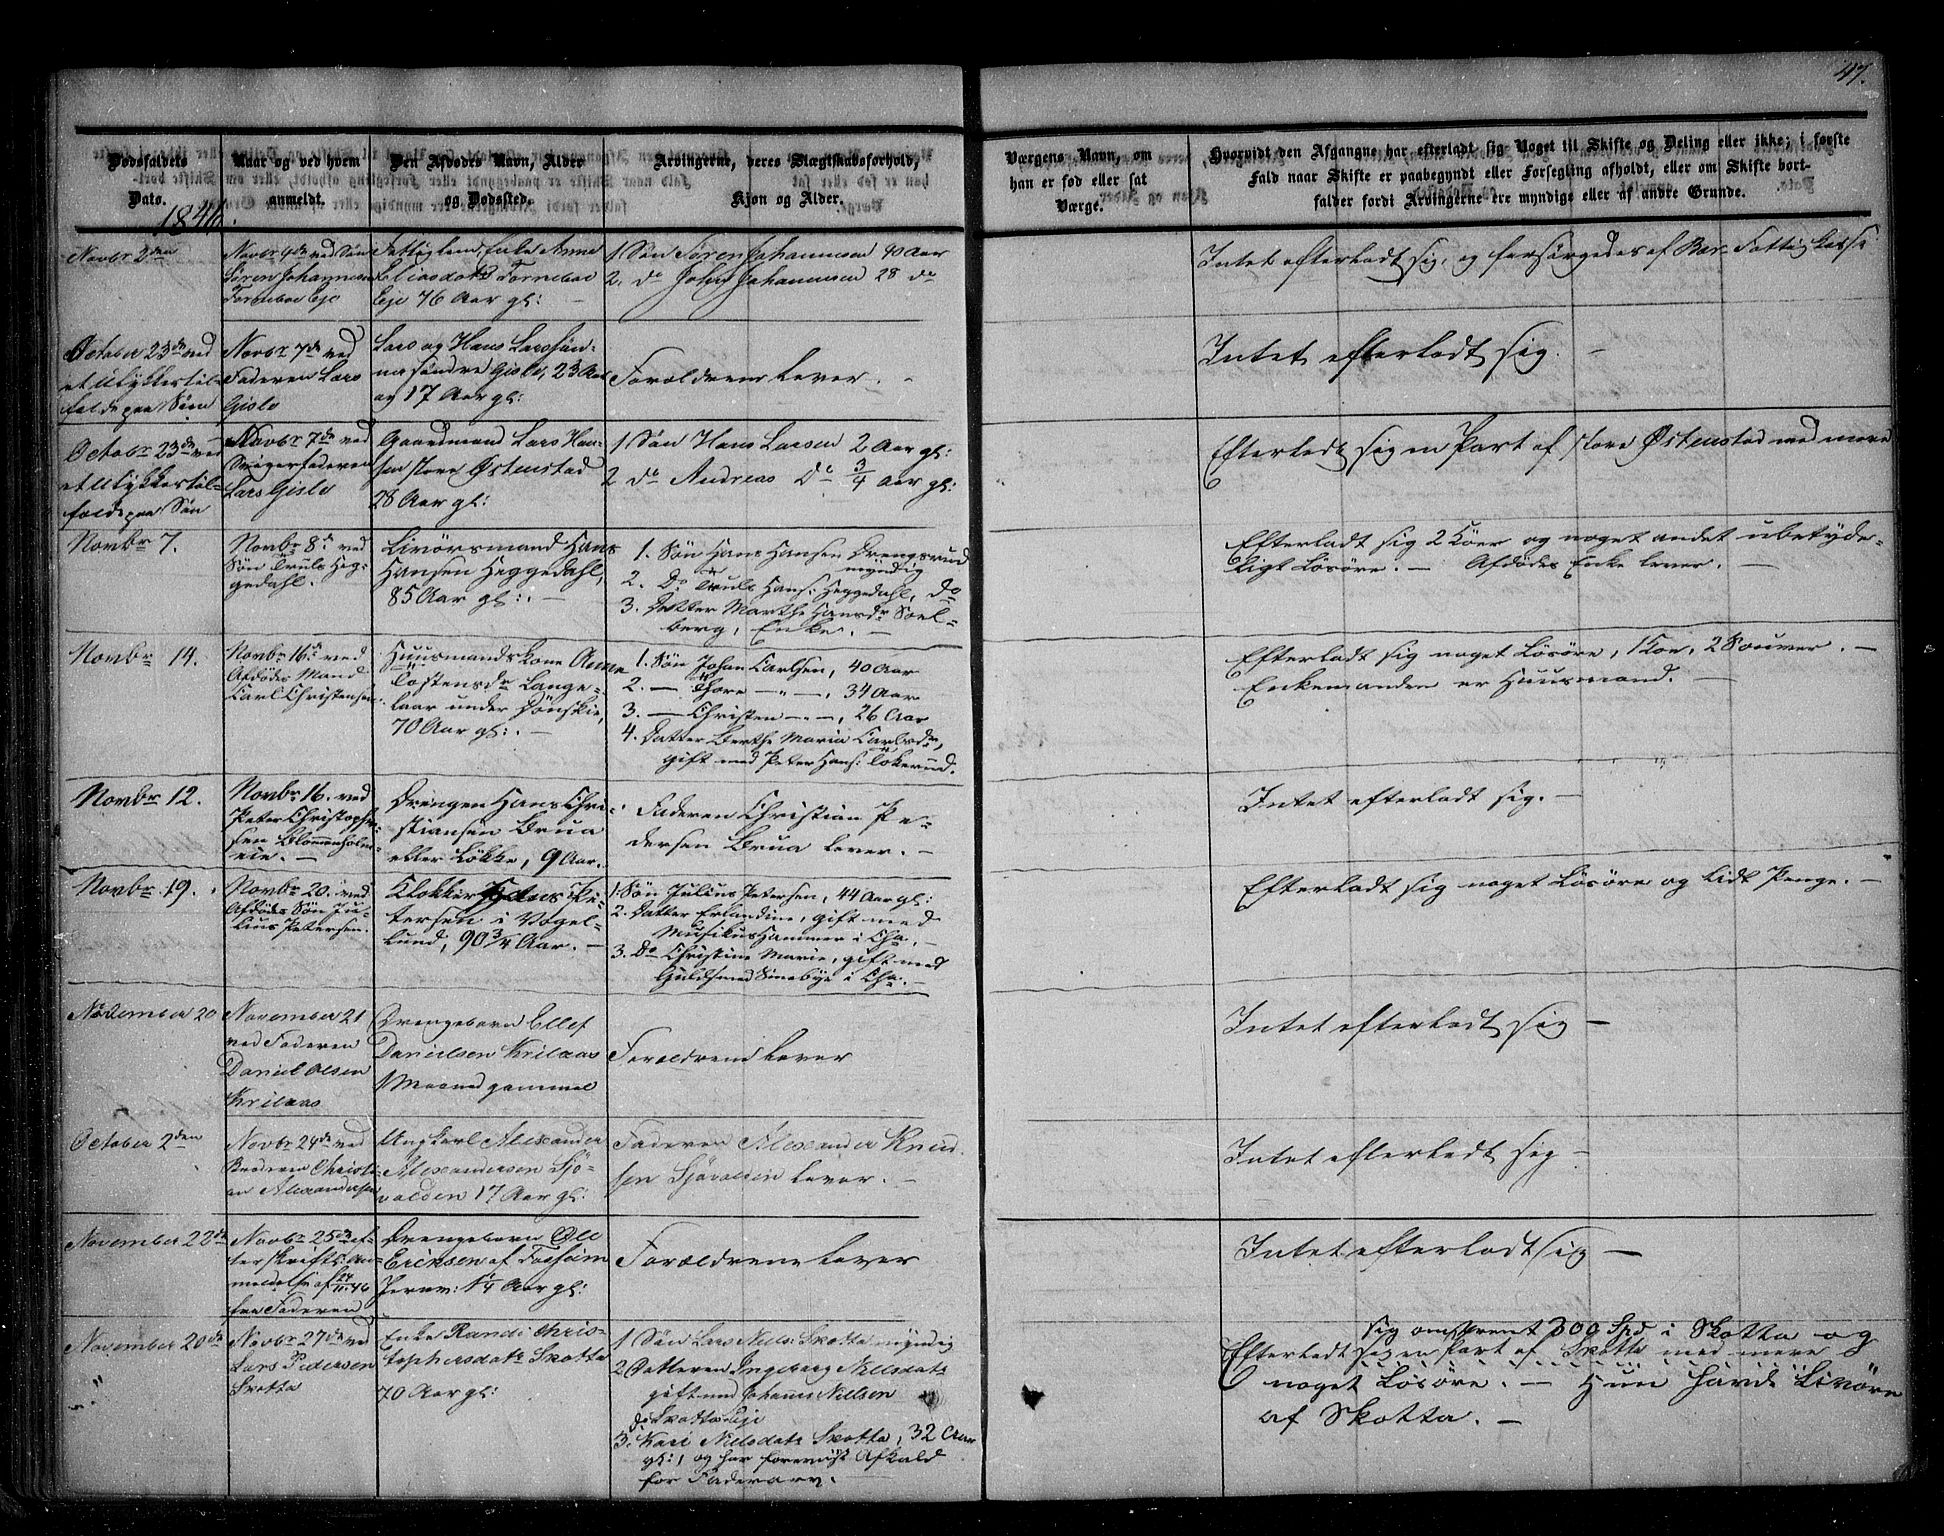 47.
Dødsfaldets
Dato.
1846.
Naar og ved hvem
anmeldt.
Den Afdødes Navn, Alder
og Dødssted.
Arvingerne, deres Slægtskabsforhold,
Kjøn og Alder.
Værgens Navn, om
han er fød eller sat
Værge.
Hvorvidt den Afgangne har efterladt sig Noget til Skifte og Deling eller ikke; i første
Fald naar Skifte er paabegyndt eller Forsegling afholdt, eller om Skifte bort-
falder fordi Arvingerne ere myndige eller af andre Grunde.
Novbr 3den
Novbr 4de ved Søn
Søren Johannesen
Torneboe Eje
Fattiglem, Enke Anne
Eliasdatr Torneboe
Eje 76 Aar gl:
1 Søn Søren Johannesen 40 Aar
2. do John Johannesen 28 do
Intet efterladt sig, og forsørgedes af Bær: Fattigkasse
October 23de ved
et Ulykkestil-
fælde paa Søen
Novbr 7de ved
Faderen Lars
Gisle
Lars og Hans Larssøn-
ner søndre Gisle, 23 Aar
og 17 Aar gl:
Forældrene lever. -
Intet efterladt sig. -
October 23de ved
et Ulykkestil-
fælde paa Søen
Novbr 7de ved
Svigerfaderen
Lars Gisle
Gaardmand Lars Han-
sen store Østenstad
28 Aar gl:
1 Søn Hans Larsen 2 Aar gl:
2 do Andreas do 3/4 Aar gl:
Efterladt sig en Part af store Østenstad med mere
Novbr 7.
Novbr 8de ved
Søn Truls Heg-
gedahl.
Livørsmand Hans
Hansen Heggedahl,
85 Aar gl:. -
1. Søn Hans Hansen Drengsrud
myndig
2. Do Truls Hans: Heggedahl, do
3. Datter Marthe Hansdr Soel-
berg, Enke. -
Efterladt sig 2 Køer og noget andet ubetyde-
ligt Løsøre. - Afdødes Enke lever. -
Novbr 14.
Novbr 16de ved
Afdødes Mand
Carl Christensen.
Huusmandskone Anne
Tostensdr Lange-
laar under Dønskie,
70 Aar gl:. -
1. Søn Johan Carlsen, 40 Aar
2. - Thore - " -, 34 Aar
3. - Christen - " -, 26 Aar
4. Datter Berthe Maria Carlsdr,
gift med Peter Hans: Tokerud.
Efterladt sig noget Løsøre, 1 Koe, 2 Souver. -
Enkemanden er Huusmand. -
Novbr 12.
Novbr 16. ved
Peter Christoph-
sen Blommenholm-
eie. -
Drengen Hans Chri-
stiansen Brua
eller Løkke, 9 Aar.
Faderen Christian Pe-
dersen Brua lever. -
Intet efterladt sig. -
Novbr 19.
Novbr 20. ved
Afdødes Søn Ju-
lius Petersen.
Klokker Hans Pe-
tersen i Vøgel-
lund, 90 3/4 Aar. -
1. Søn Julius Petersen, 44 Aar gl:
2. Datter Erlandine, gift med
Musikus Hammer i Cha. -
3. Do Christine Marie, gift med
Guldsmed Sønebye i Cha. -
Efterladt sig noget Løsøre og lidt Penge. -
November 20
November 21
ved Faderen
Daniel Olsen
Krilaas
Drengebarn Ellef
Danielsen Krilaas
1 Maaned gammel
Forældrene lever
Intet efterladt sig -
October 2den
Novbr 24de ved
Broderen Christi-
an Alexandersen
Ungkarl Alexander
Alexandersen Sjø-
volden 17 Aar gl:
Faderen Alexander Knud
sen Sjøvolden lever. -
Intet efterladt sig -
November 22de
Novbr 25de ef-
ter skriftl: An-
meldelse af 24/11 46
fra Faderen
Drengebarn Ole
Eriksen af Fossum
Jernv: 1/4 Aar gl:
Forældrene lever
Intet efterladt sig -
November 20de
Novbr 27de ved
Lars Pedersen
Skotta
Enke Randi Chris-
tophersdatr Skotta
70 Aar gl:
1 Søn Lars Niels: Skotta myndig
2 Datteren Ingeborg Nielsdatr
gift med Johannes Nielsen
Skotta Eje
3. Do Kari Nielsdatr Skotta, 32 Aar
gl:, og har forevist Afkald
for Fadernarv.
sig omtrent 300 Spd i Skotta og
Efterladt sig en Part af Skotta med mere
noget Løsøre. - Hun havde Livøre
af Skotta. -